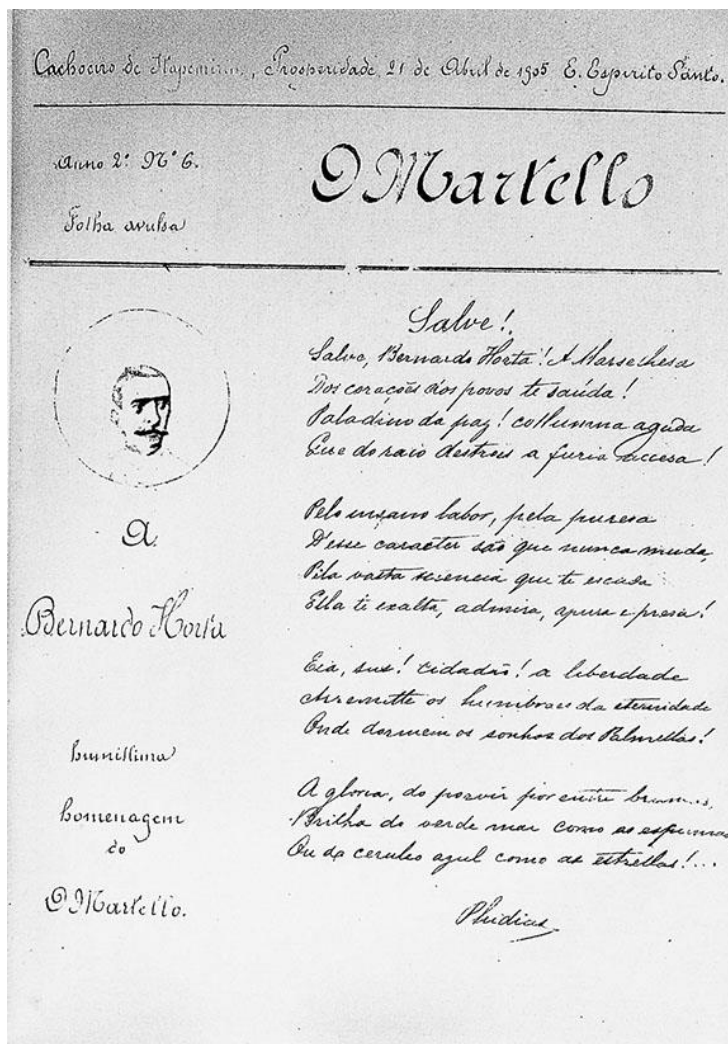 Cachoeiro de Itapemirim, Prosperidade, 21 de Abril de 1905 E. Espirito Santo.
Anno 2º Nº 6.
Folha avulsa
O Martello
A
Bernardo Horta
humillima
homenagem
do
O Martello.
Salve!
Salve, Bernardo Horta! A Marselhesa
Dos corações dos povos te saúda!
Paladino da paz! collumna aguda
Que do raio destroes a furia accesa!
Pelo insano labor, pela puresa
D'esse caracter são que nunca muda,
Pela vasta sciencia que te escuda
Ella te exalta, admira, apura e presa!
Eia, sus! cidadão! a liberdade
Arremette os humbraes da eternidade
Onde dormem os sonhos dos Palmellas!
A gloria, do porvir por entre brumas,
Brilha do verde mar como as espumas
Ou do ceruleo azul como as estrellas!...
Phidias